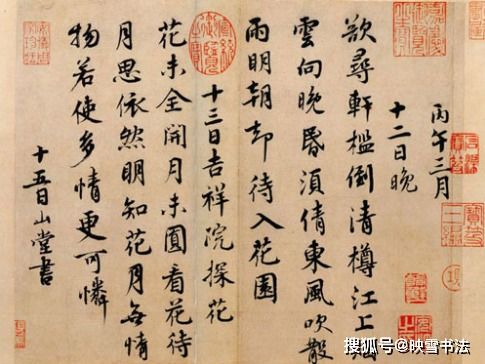 丙午三月
十二日晚
欲尋軒檻倒清樽江上
雲向晚昏須倩東風吹散
雨明朝却待入花園
十三日吉祥院探花
花未全開月未圓看花待
月思依然明知花月無情
物若使多情更可憐
十五日山堂書
搜狐号@映雪书法